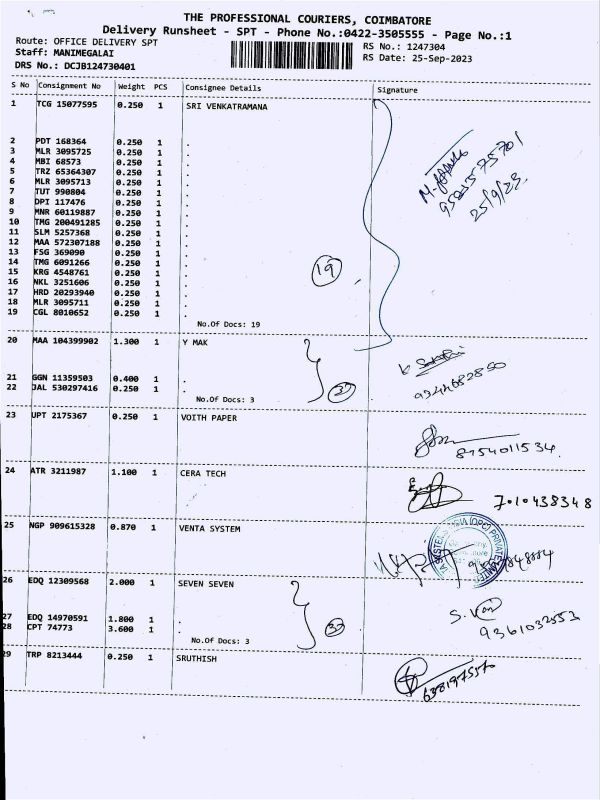 THE PROFESSIONAL COURIERS, COIMBATORE
Delivery Runsheet - SPT - Phone No.:0422-3505555 - Page No.:1
Route: OFFICE DELIVERY SPT RS No.: 1247304
Staff: MANIMEGALAI RS Date: 25-Sep-2023
DRS No.: DCJB124730401
S No Consignment No Weight PCS Consignee Details Signature
1 TCG 15077595 0.250 1 SRI VENKATRAMANA
2 PDT 168364 0.250 1 .
3 MLR 3095725 0.250 1 .
4 MBI 68573 0.250 1 .
5 TRZ 65364307 0.250 1 .
6 MLR 3095713 0.250 1 .
7 TUT 990804 0.250 1 .
8 DPI 117476 0.250 1 .
9 MNR 60119887 0.250 1 .
10 TMG 200491285 0.250 1 .
11 SLM 5257368 0.250 1 .
12 MAA 572307188 0.250 1 .
13 FSG 369090 0.250 1 .
14 TMG 6091266 0.250 1 .
15 KRG 4548761 0.250 1 .
16 NKL 3251606 0.250 1 .
17 HRD 20293940 0.250 1 .
18 MLR 3095711 0.250 1 .
19 CGL 8010652 0.250 1 .
No.Of Docs: 19
19
25/9/23
20 MAA 104399902 1.300 1 Y MAK
21 GGN 11359503 0.400 1 .
22 JAL 530297416 0.250 1 .
No.Of Docs: 3
9344682850
23 UPT 2175367 0.250 1 VOITH PAPER
8754011534.
24 ATR 3211987 1.100 1 CERA TECH
7010438348
25 NGP 909615328 0.870 1 VENTA SYSTEM
26 EDQ 12309568 2.000 1 SEVEN SEVEN
27 EDQ 14970591 1.800 1 .
28 CPT 74773 3.600 1 .
No.Of Docs: 3
9361032553
29 TRP 8213444 0.250 1 SRUTHISH